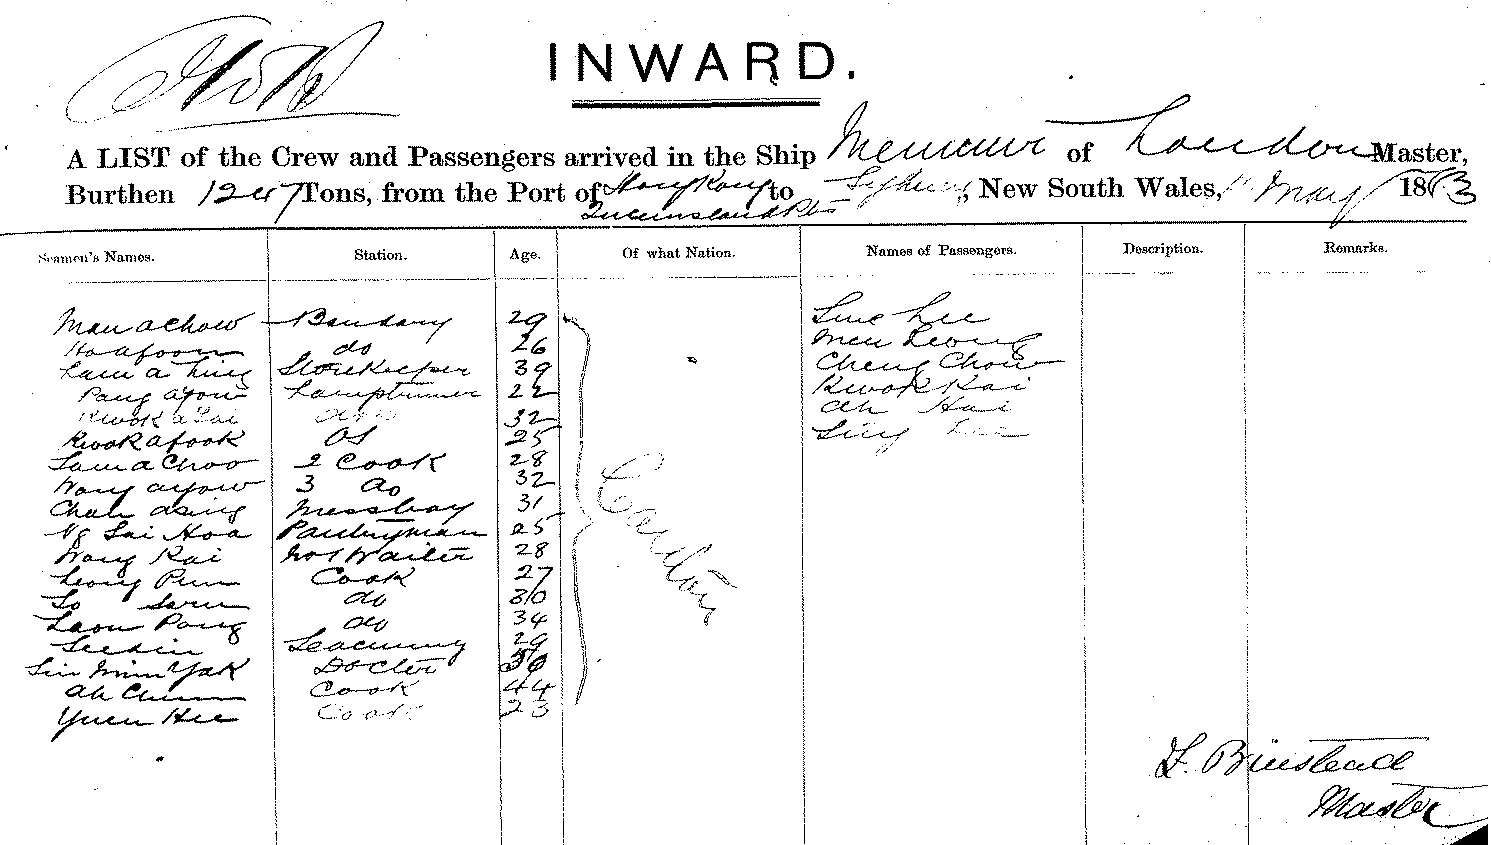 INWARD.
A LIST of the Crew and Passengers arrived in the Ship Menmuir of London Master,
Burthen 1247 Tons, from the Port of Hong Kong to Sydney, New South Wales, 11 May 1883
Queensland Pts
Seamen's Names. Station. Age. Of what Nation. Names of Passengers. Description. Remarks.
Man achow Bandary 29 Sue Lee
Ho afoon do 26 Men Leong
Lam a Ling Storekeeper 39 Cheng Chow
Pang ayow Lamptrimmer 22 Kwok Kai
Kwok a Kai 32 ah Hai
Kwok afook OS 25 Sing Lee
Lam a Choo 2 Cook 28
Wong ayow 3 do 32
Chan asing Messboy 31
Ng Sai Hoa Pantryman 25
Wong Kai No 1 Waiter 28
Canton
Leong Pun Cook 27
Lo do 30
Laou Pong do 34
Seecunny 29
Sin Min Yak Doctor
ah Chun Cook 44
Yuen Hee Cook 23
F. Binstead
Master